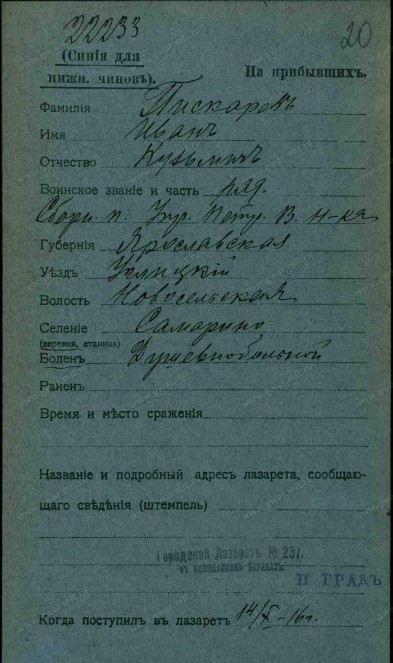 22233
20
(Синія для
нижн. чиновъ).
На прибывшихъ.
Фамилія Пискаревъ
Имя Иванъ
Отчество Кузьмичъ
Воинское званіе и часть ряд.
Сборн. п. Упр. Петр. В. Н-ка
Губернія Ярославская
Уѣздъ Углицкій
Волость Новосельская
Селеніе Самарино
(деревня, станица)
Боленъ Душевнобольной
Раненъ
Время и мѣсто сраженія
Названіе и подробный адресъ лазарета, сообщаю-
щаго свѣдѣнія (штемпель)
Городской Лазаретъ № 237.
въ
П ГРАДЪ
Когда поступилъ въ лазаретъ 14/X-16г.